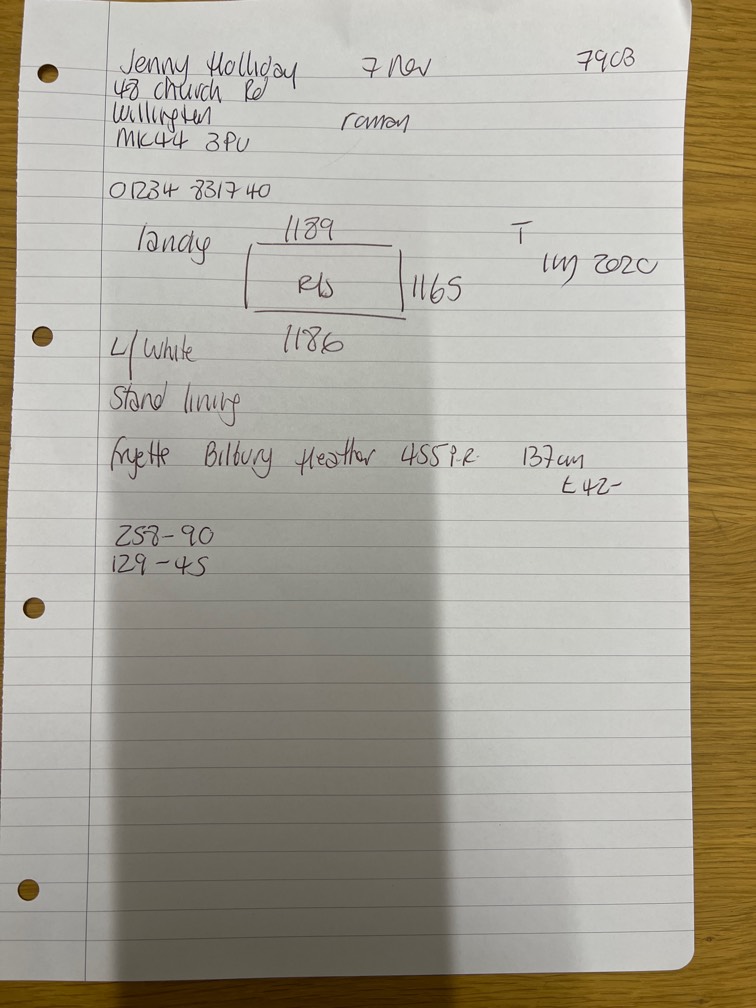 Jenny Holliday 7 Nov 7903
48 Church Rd
Willington
MK44 3PU roman
01234 831740
1189 T
Tandy R/S 1165 1m 2020
L/White 1186
Stand lining
Fryette Bilbury Heather 455 P.R. 137cm
£42-
258-90
129-45